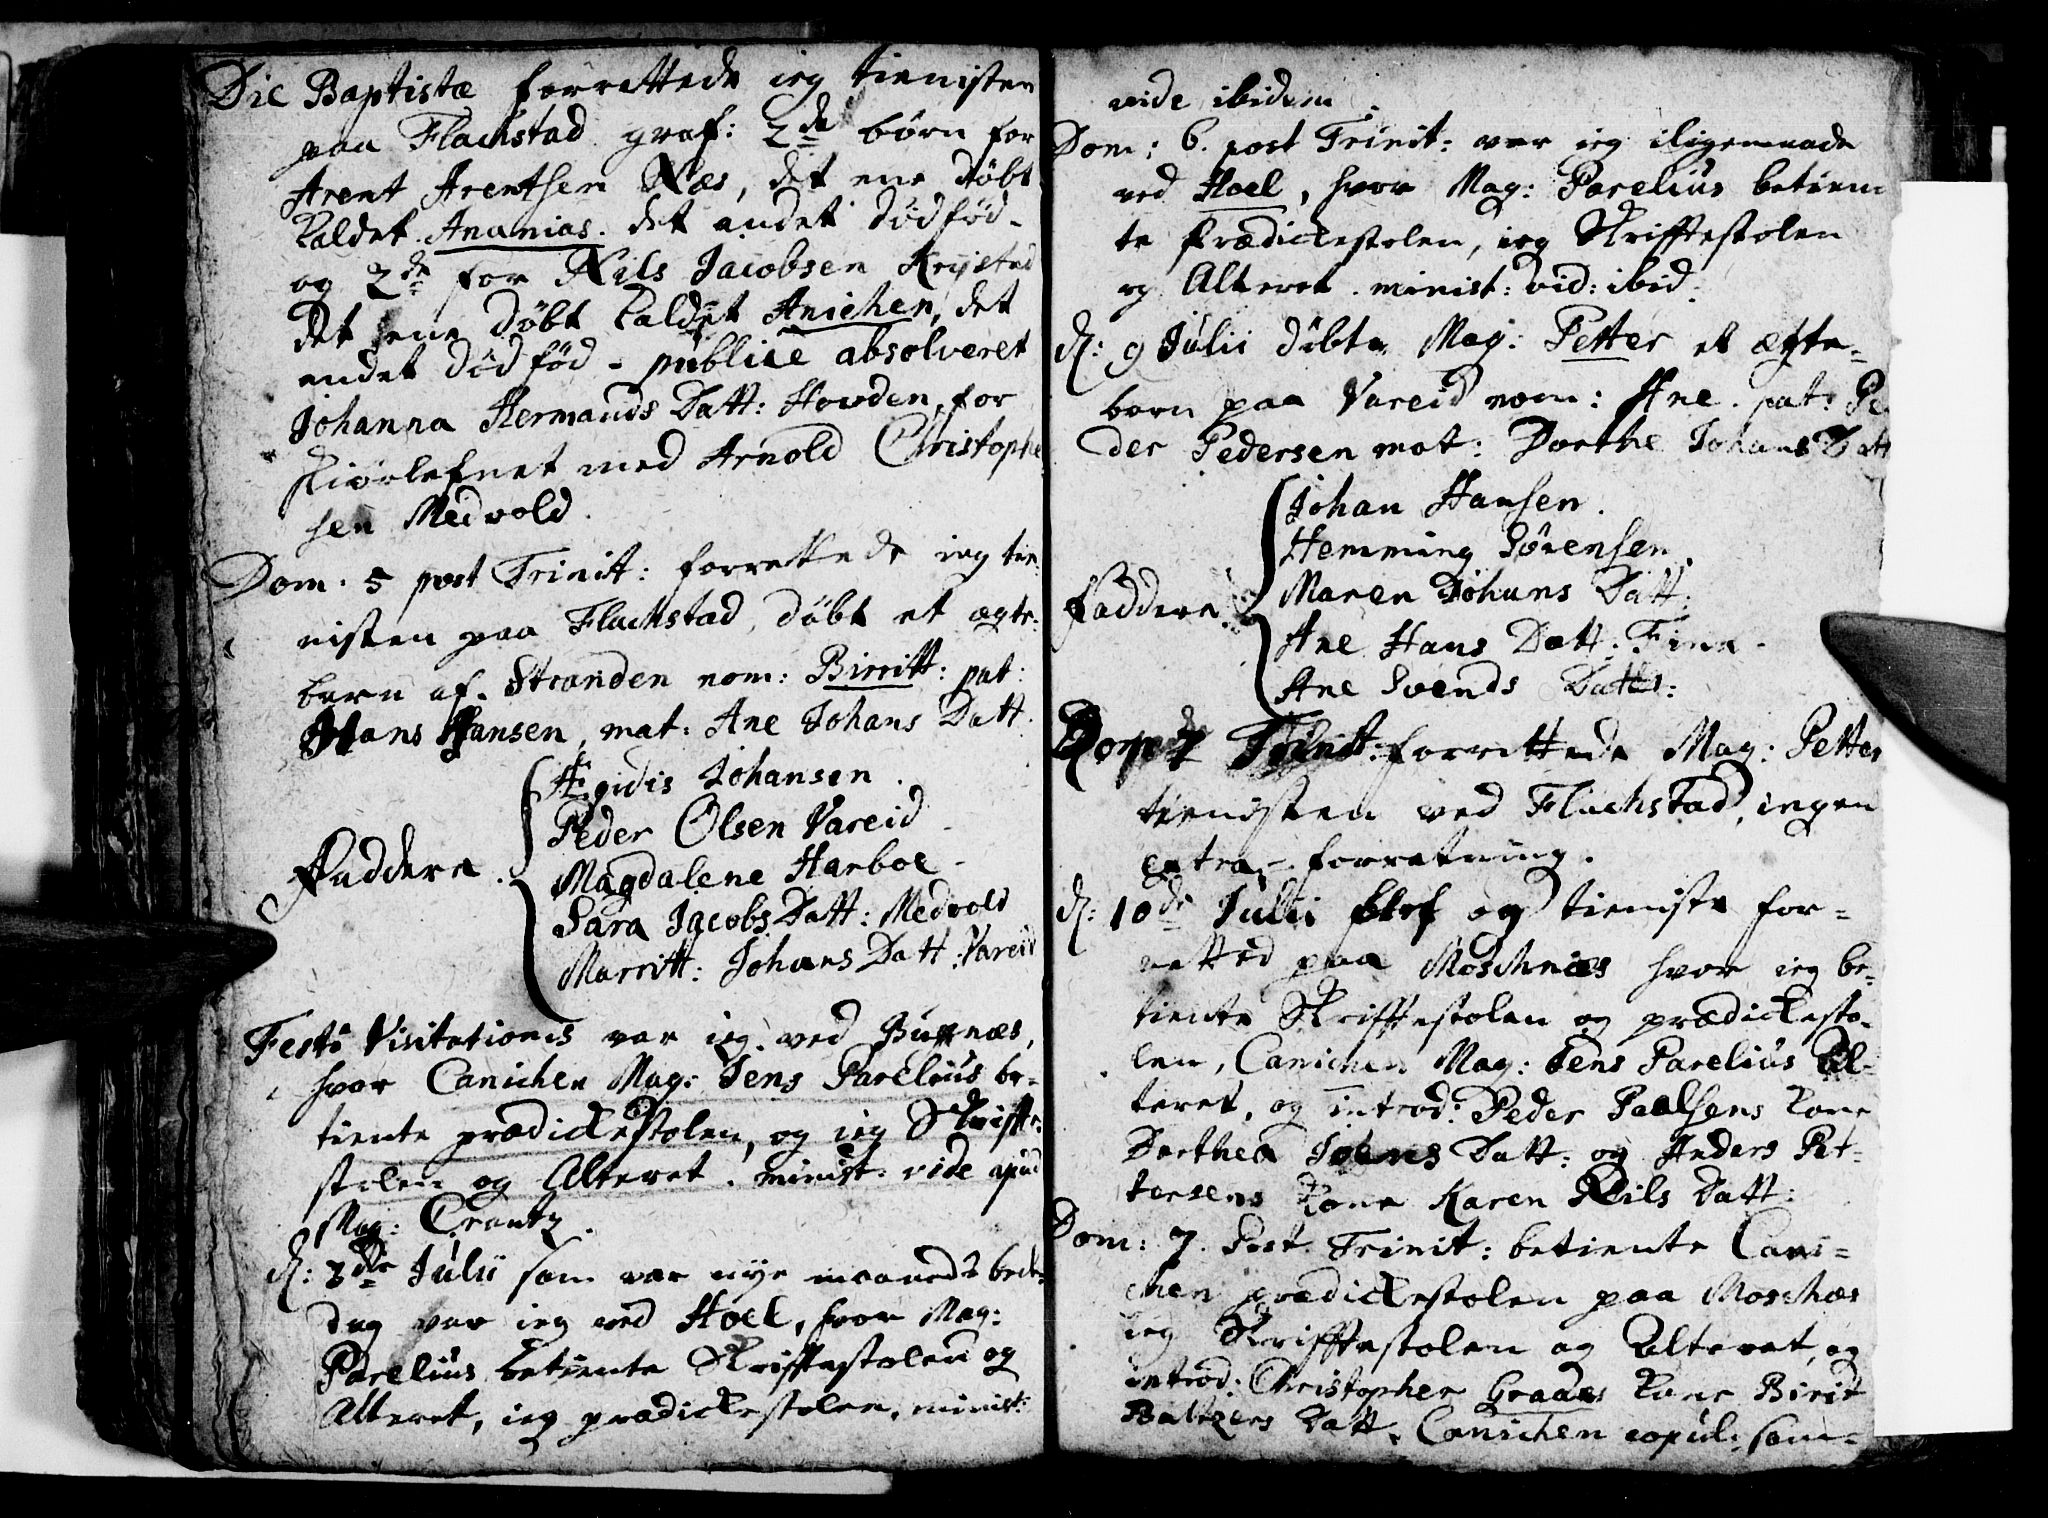 Die Baptistæ forrettede ieg tienisten
paa Flachstad. graf: 2de børn for
Arent Arentsen Næs, det ene døbt
kaldet Ananias. det andet dødfød -
og 2de for Nils Jacobsen Krystad
det ene døbt kaldet Anichen, det
andet dødfød - publice absolveret
Johanna Hermands Datt: Howden, for
Løslefnet med Arnold Christophe
sen Medvold.
Dom. 5 post Trinit: forrettede ieg tie-
nisten paa Flachstad, døbt et ægte-
barn af Stranden nom: Birritt: pat:
Hans Hansen, mat: Ane Johans Datt.
Ægidis Johansen.
Peder Olsen Vareid
Faddere. Magdalene Harboe -
Sara Jacobs Datt: Medvold
Marritt: Johans Datt: Vareid
Festi Visitationis var ieg ved Buxnæs,
hvor Canichen Mag: Jens Parelius be-
tiente prædickestolen, og ieg Skriffte-
stolen og Alteret. minist: vide apud
Mag: Crantz.
d: 3die Julii som var nye maaneds bede-
dag var ieg ved Hoel, hvor Mag:
Parelius betiente Skrifftestolen og
Alteret, ieg prædickestolen, minist:
vide ibidem
Dom: 6. post Trinit: var ieg iligemaade
ved Hoel, hvor Mag: Parelius betien
te Prædickestolen, ieg Skrifftestolen
og Alteret. minist: vid: ibid:
d: 9 Julii døbte Mag: Petter et ægte-
barn paa Vareid nom: Ane. pat: Pe
der Pedersen mat: Dorthe Johans Datt
Johan Hansen.
Hemming Sørensen.
Faddere. Maren Johans Datt:
Ane Hans Datt: Finn.
Ane Svends Datter:
Dom 7 Trinit: forrettede Mag: Petter
tienisten ved Flachstad, ingen
extra-forretning.
d: 10de Julii blef og tieniste for-
retted paa Moschnæs hvor ieg be-
tiente Skrifftestolen og prædickesto-
len, Canichen Mag: Jens Parelius Al-
teret, og introd: Peder Paalsens kone
Dorthea Joens Datt: og Anders Pet-
tersens kone Karen Nils Datt:
Dom: 7. Post. Trinit: betiente Cani-
chen prædickestolen paa Moschæs
ieg Skrifftestolen og Alteret, og
introd: Christopher Graaes kone Birit
Baltzers Datt. Canichen copul: sam-